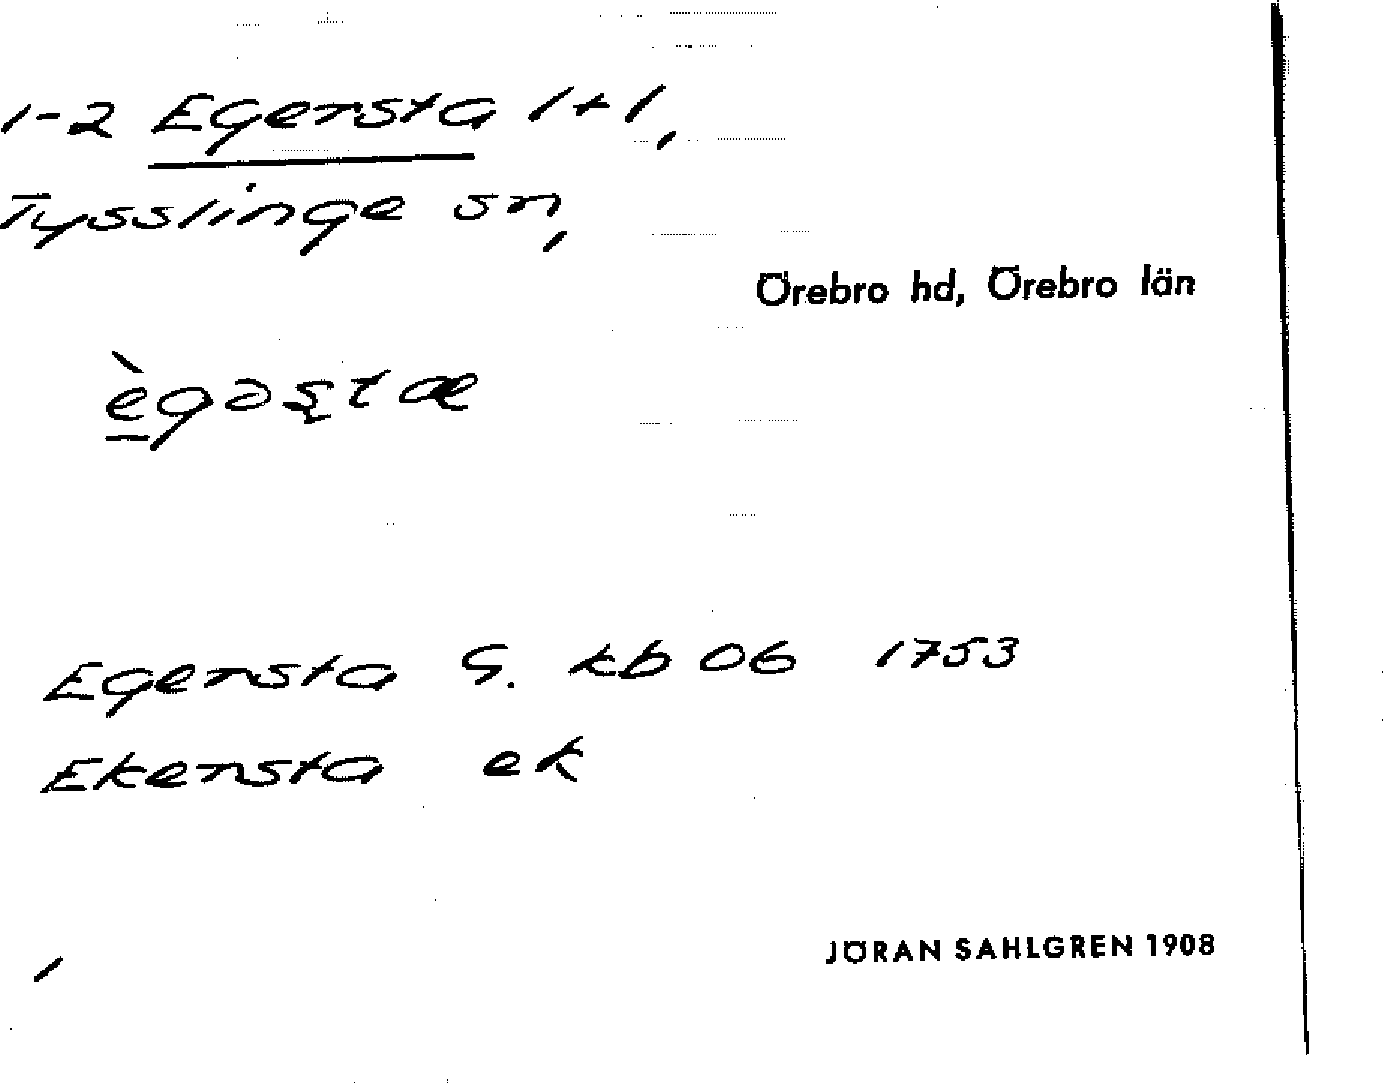 1-2 Egersta 1+1,
Tysslinge sn,
Örebro hd, Örebro län
Egensta G. kb 06 1753
Ekensta ek
JÖRAN SAHLGREN 1908